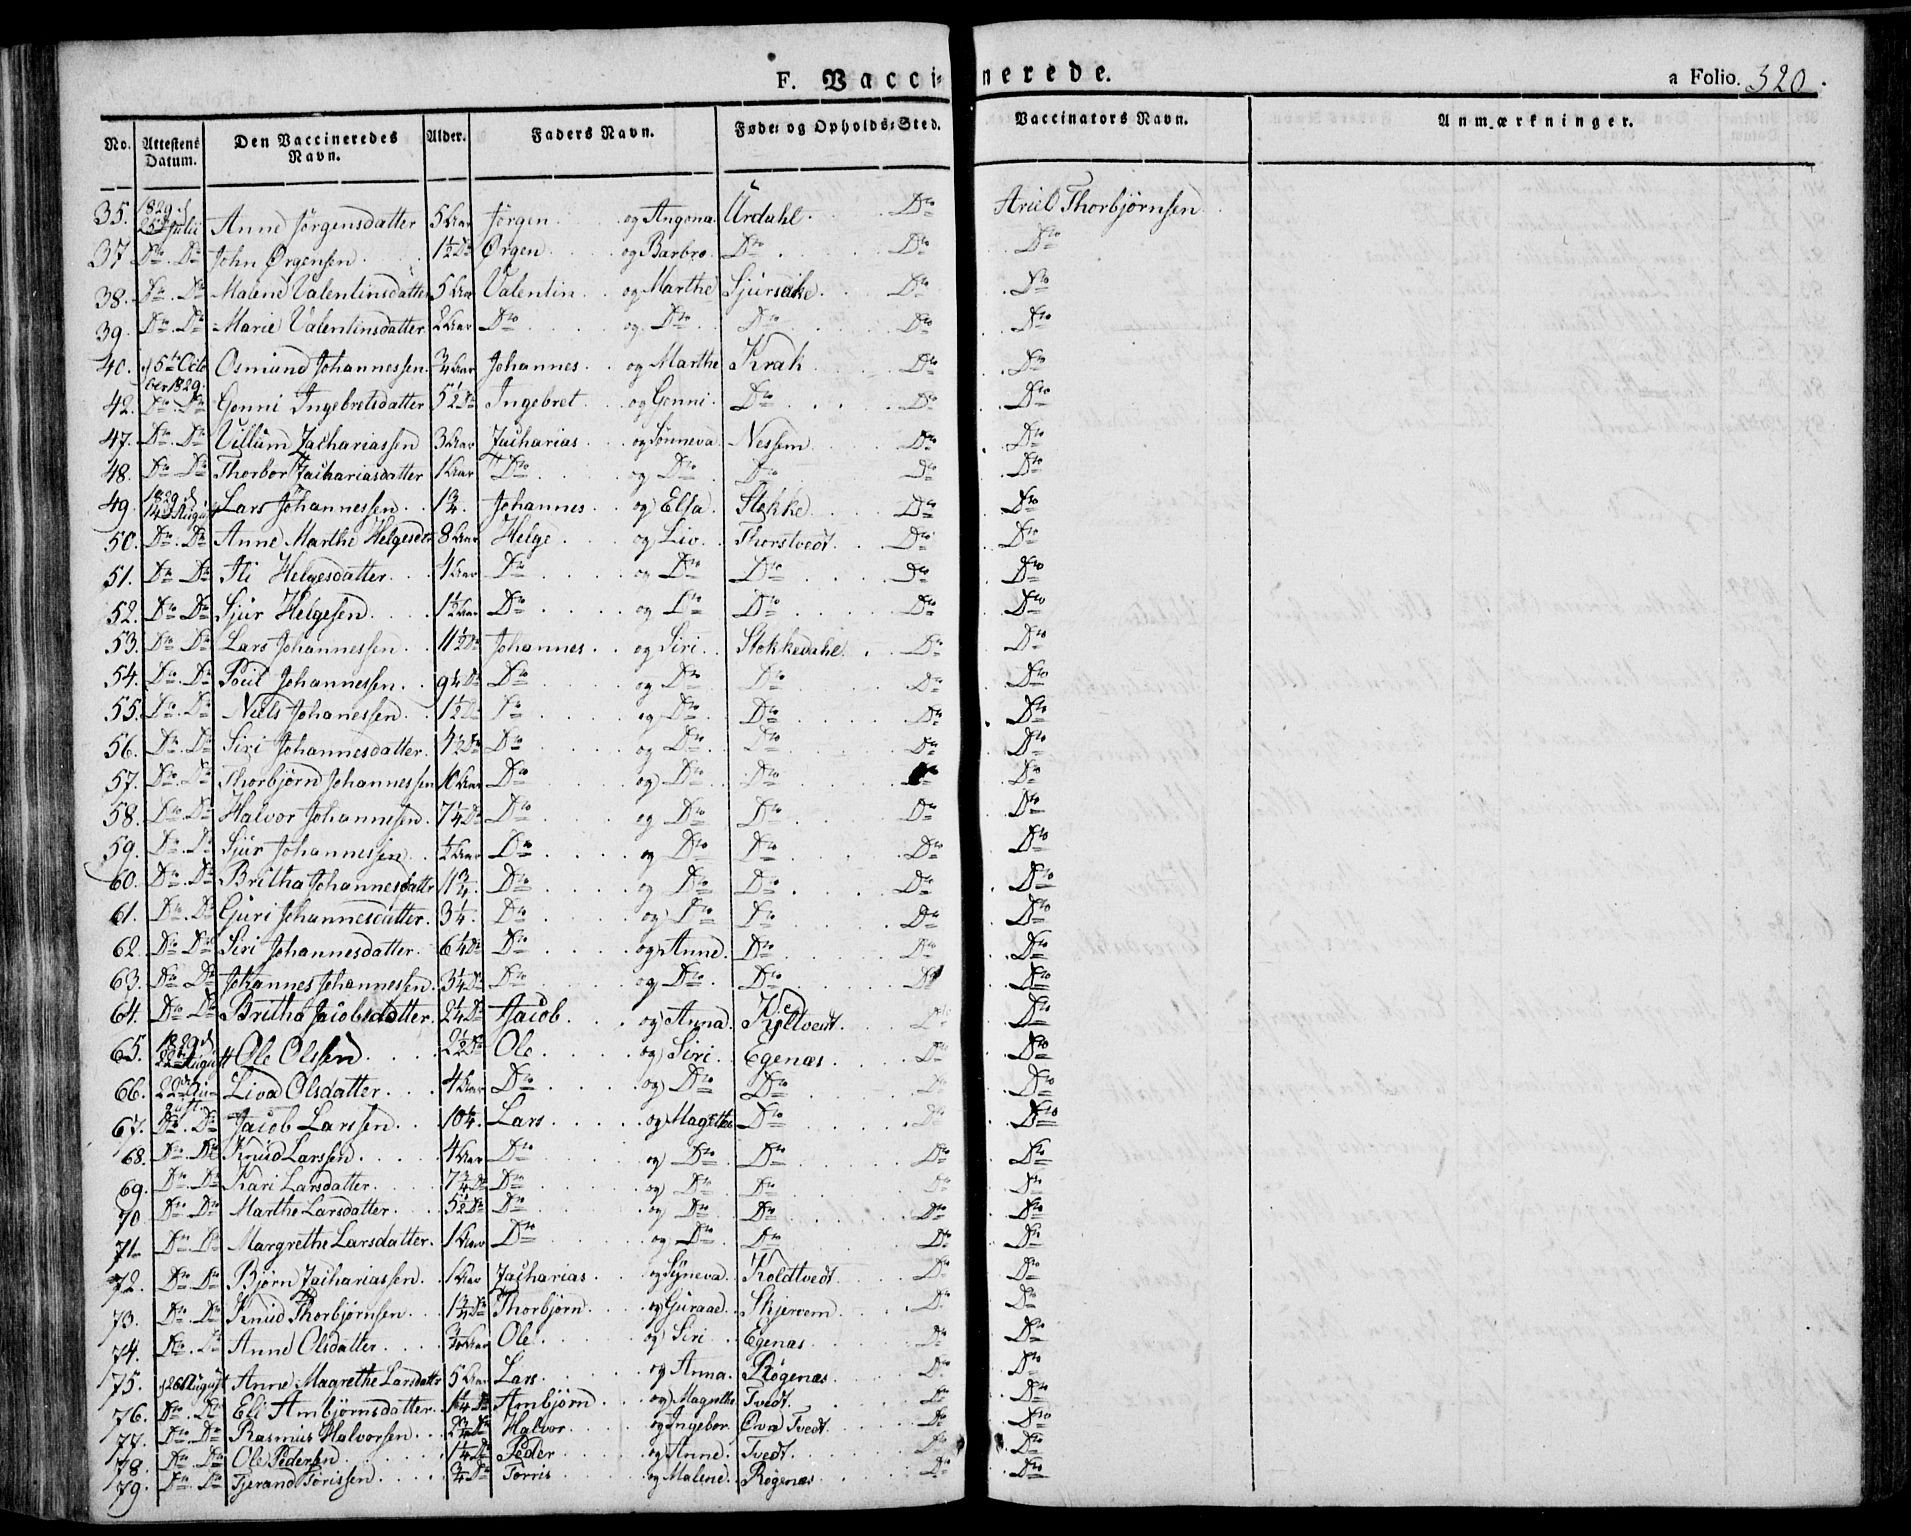 F. Vaccinerede.
a Folio. 320.
No. Attestens Datum. Den Vaccineredes Navn. Alder. Faders Navn. Føde- og Opholds-Sted. Vaccinators Navn. Anmærkninger.
35. 1829 d 25de Julii Anne Jørgensdatter 5 Aar Jørgen og Angona Urdahl. Do Ariel Thorbjørnsen
37 Do. Do John Ørgensen. 1½ Do Ørgen og Barbro. Do Do Do
38. Do. Do Malene Valentinsdatter 5 Aar Valentin og Marthe Sjursæke. Do Do
39. Do. Do Marie Valentinsdatter. 2 Aar Do og Do Do Do Do
40. d 5te Octo ber 1829. Osmund Johannessen. ¾ Aar Johannes og Marthe Krak Do Do
42. Do. Do Gonni Ingebretsdatter 5½ Do Ingebret og Gonni. Do Do Do
47. Do. Do Villum Zachariassen 3 Aar Zacharias og Sønneva Nessem Do Do
48. Do. Do Thorbor Zachariasdatter 1 Aar Do og Do Do Do Do
49. 1829 d 14de August Lars Johannessen. 1¾. Johannes og Elsa. Stokke Do Do
50. Do. Do Anne Marthe Helgesdtr 8 Aar Helge og Liv. Thorstvedt. Do Do
51. Do Do Ali Helgesdatter. 4 Aar Do og Do Do Do Do
52. Do Do Sjur Helgesen. 1½ Aar Do og Do Do Do Do
53. Do Do Lars Johannessen. 11½ Do Johannes og Siri. Stokkedahl. Do Do
54. Do. Do Poul Johannessen. 9¼ Do Do og Do Do Do Do
55. Do. Do Niels Johanessen. 1½ Do Do og Do Do Do Do
56. Do. Do Siri Johannesdatter. 4½ Do Do og Do Do Do Do
57. Do. Do Thorbjørn Johannessen 10 Aar Do og Do Do Do Do
58. Do. Do Halvor Johannessen. 7¼ Do Do og Do Do Do Do
59. Do. Do Sjur Johannessen ½ Aar Do og Do Do Do Do
60. Do. Do Britha Johannesdattr 1¾. Do og Do Do Do Do
61. Do. Do Guri Johannesdatter. 3¼. Do og Do Do Do Do
62. Do Do Siri Johannesdatter. 6¼ Do Do og Anne. Do Do Do
63. Do. Do Johannes Johannessen. 3¼ Do Do og Do Do Do Do
64. Do. Do Britha Jacobsdatter. 2¼ Do Jacob og Anna. Do Do
65. 1829 d 22de August Ole Olssen 2½ Do Ole og Siri Egenæs Do Do
66. 22de Au gust. Liva Olsdatter. 4 Aar Do og Do Do Do Do
67. Do. Do Jacob Larssen. 10¼. Lars og Magrethe Do Do Do
68. Do. Do Knud Larssen 4 Aar Do og Do Do Do Do
69. Do. Do Kari Larsdatter. 7¾ Do Do og Do Do Do Do
70 Do. Do Marthe Larsdatter. 5½ Do Do og Do Do Do Do
71. Do. Do Margrethe Larsdatter. 1 Aar Do og Do Do Do Do
72. Do. Do Bjørn Zachariassen. 1 Aar Zacharias og Syneva Koldtvedt. Do Do
73. Do. Do Knud Thorbjørnsen. 1¾ Do Thorbjørn og Guraae. Skjervem. Do Do
74. Do. Do Anne Olsdatter. ¾ Aar Ole og Siri Egenæs Do Do
75. d 26 August Anne Magrethe Larsdatr 5 Aar Lars og Anna. Røgenæs Do Do
76. Do. Do Eli Ambjørnsdatter. 1¼ Do Ambjørn og Magrethe Tvedt. Do Do
77. Do. Do Rasmus Halvorsen. 2¾ Do Halvor og Ingebor. Øvre Tvedt. Do Do
78. Do. Do Ole Pedersen 1¼ Do Peder og Anne. Tvedt. Do Do
79. Do. Do Tjerand Torissen. ¾ Do Torris og Malene. Røgenæs Do Do